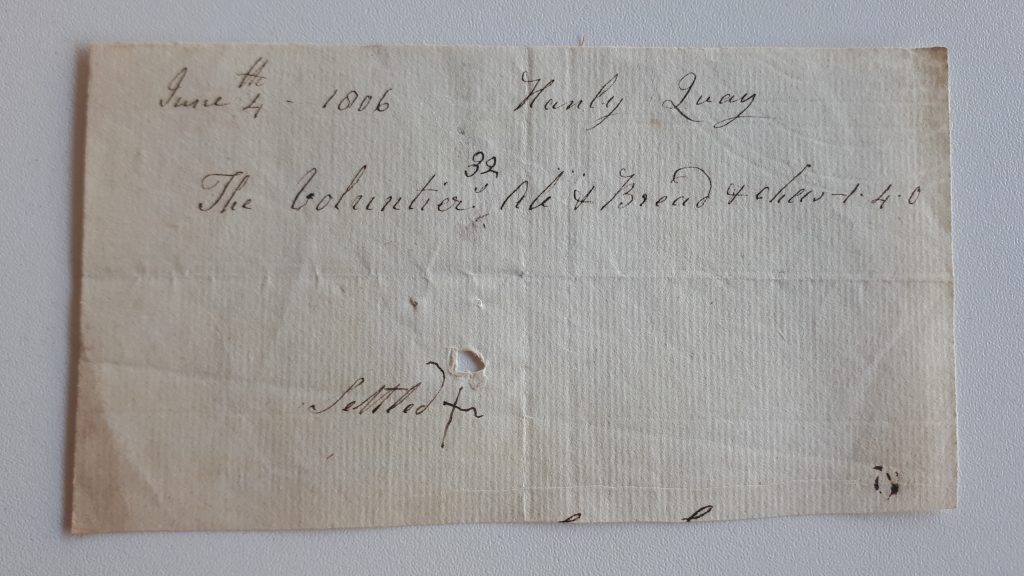 June 4th - 1806 Hanly Quay
32
The Voluntiers Ale & Bread & chees 1.4.0
Settled